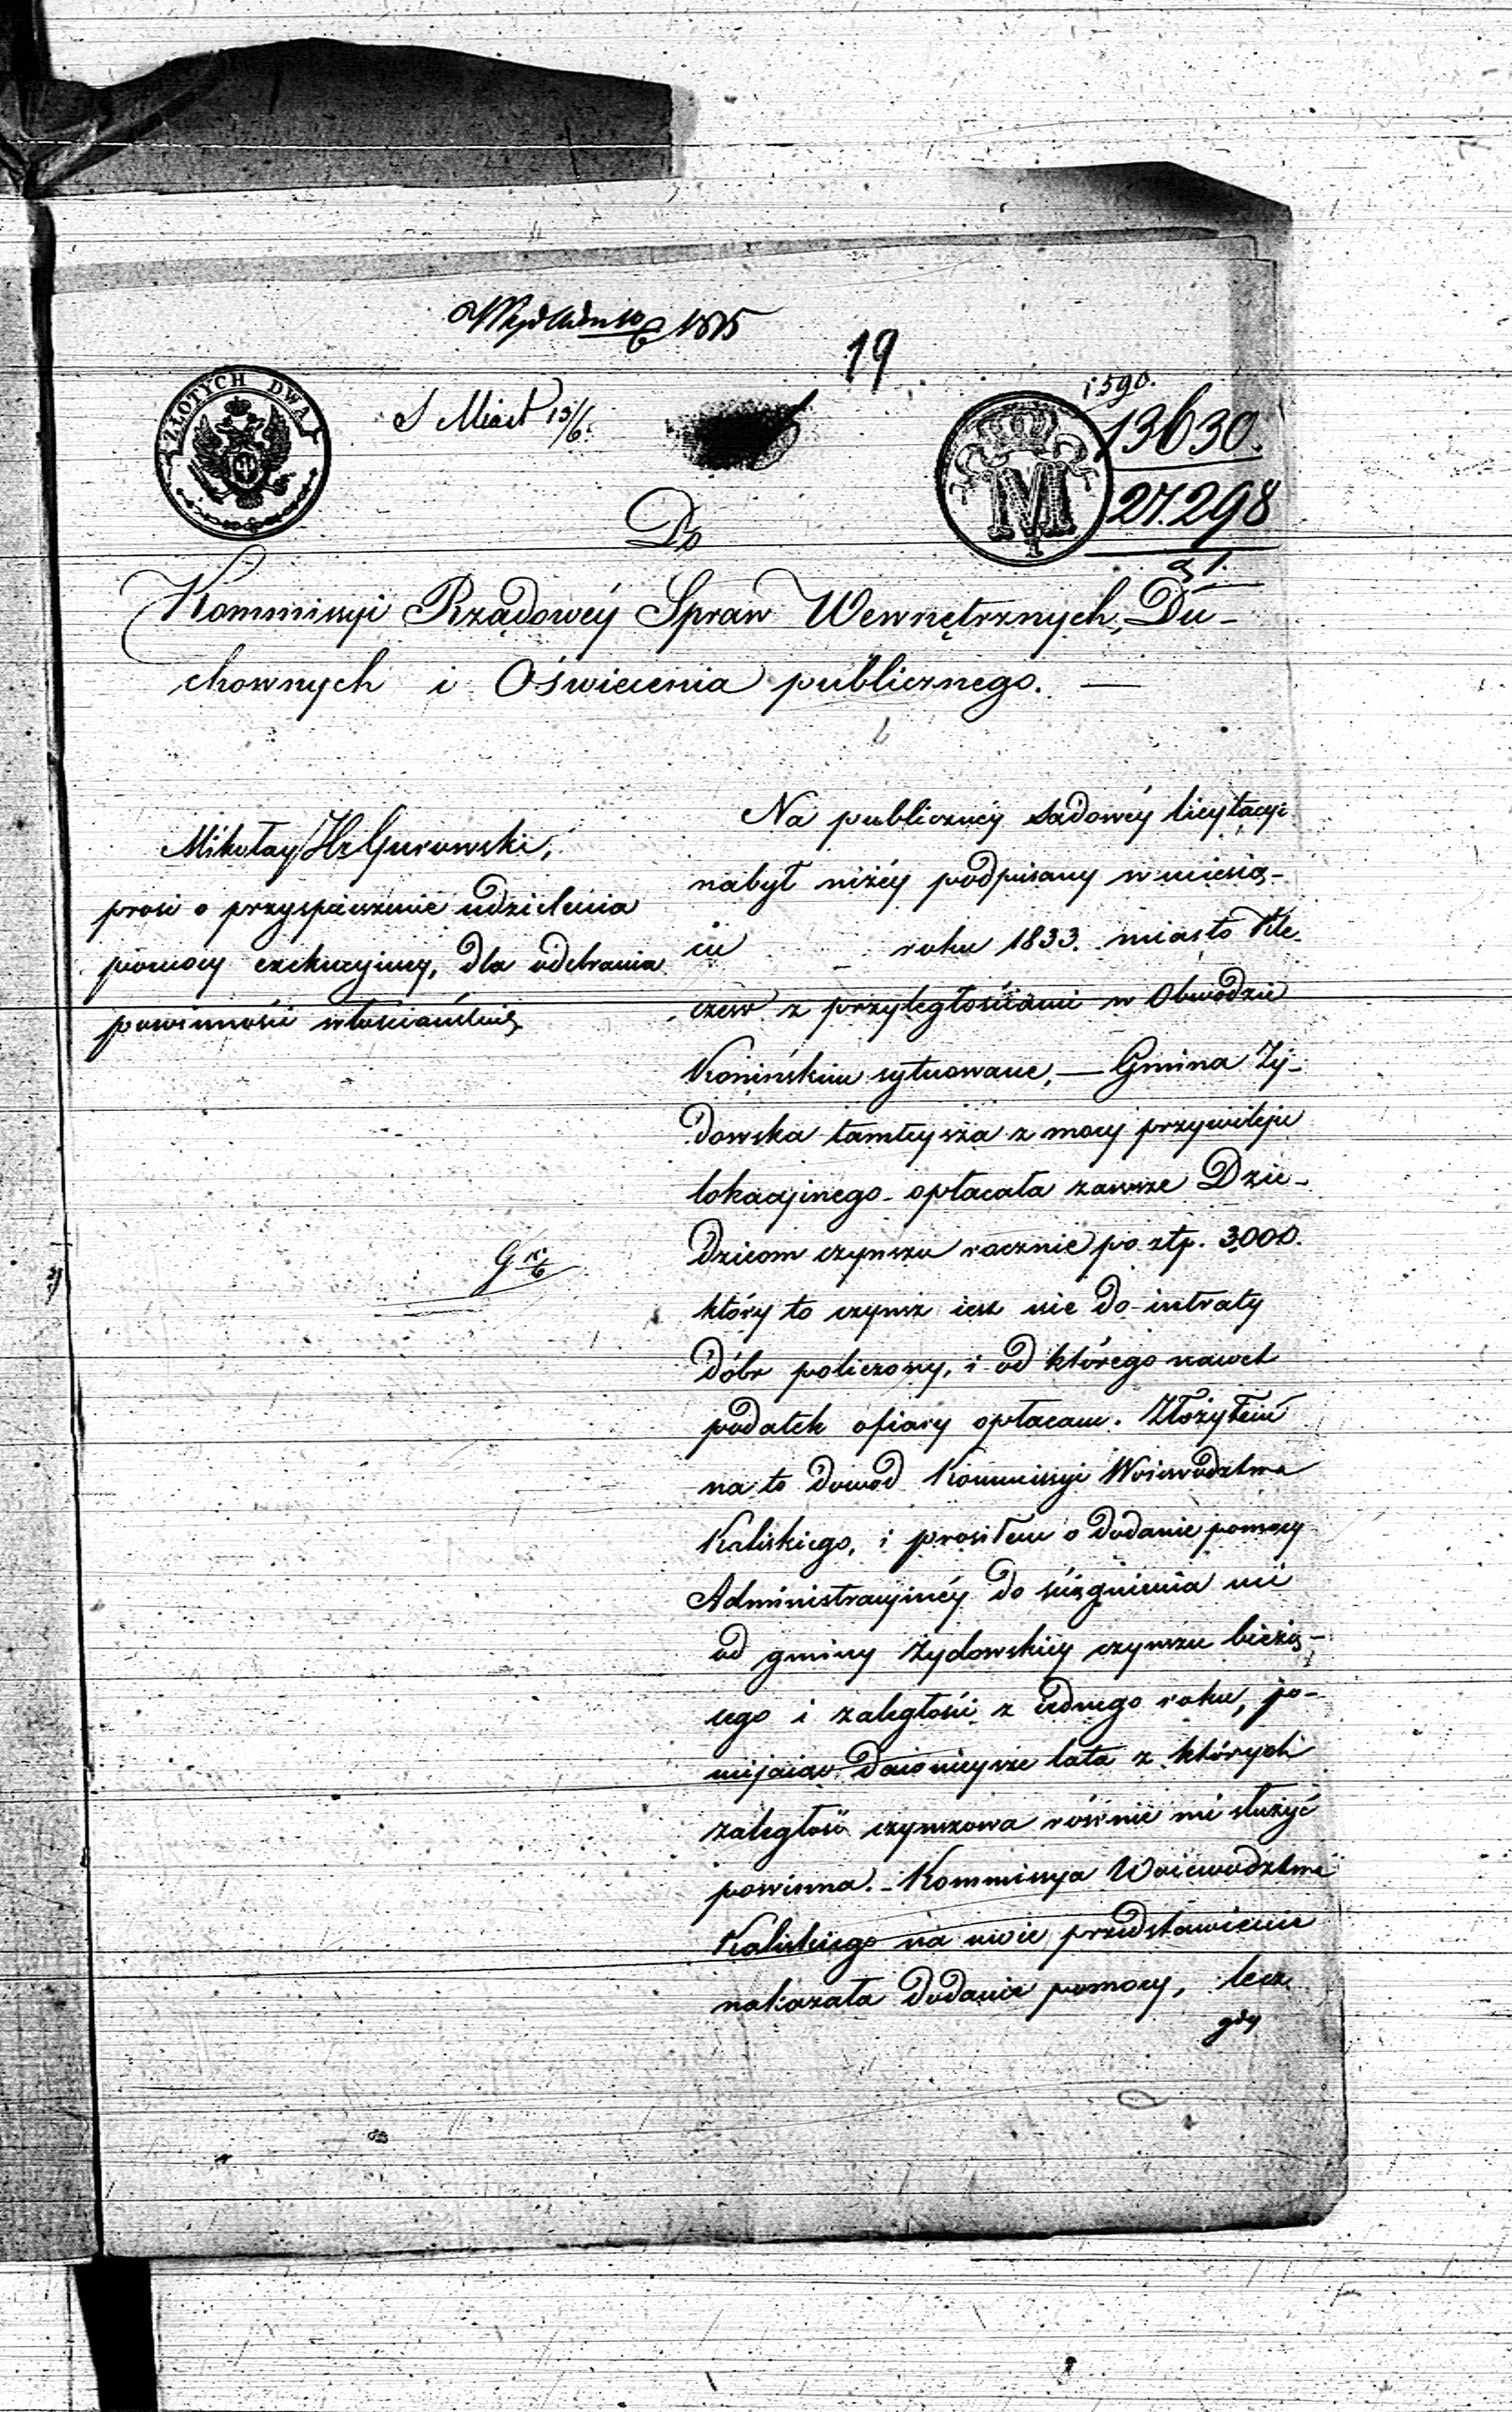 1835
19
ZŁOTYCH DWA
S Miast 13/6.
1590.
13630.
27.298
Do
Kommissyi Rządowéy Spraw Wewnętrznych, Du-
chownych i Oświecenia publicznego. —
Mikołay Hr Gurowski,
prosi o przyspieszenie udzielenia
pomocy exekucyiney, dla odebrania
powinności włościańskiéy
Na publicznéy sądowéy licytacyi
nabył niżéy podpisany w miesią-
cu roku 1833. miasto Kle-
czew z przyległościami w Obwodzie
Konińskim sytuowane, — Gmina Ży-
dowska tamteysza z mocy przywileju
lokacyinego opłacała zawsze Dzie-
dzicom czynszu rocznie po złp. 3000.
który to czynsz iest nie do intraty
dóbr policzony, i od którego nawet
podatek ofiary opłacam. Złożyłem
na to dowód Kommissyi Woiewództwa
Kaliskiego, i prosiłem o dodanie pomocy
Administracyinéy do ściągnienia mi
od gminy żydowskiey czynszu bieżą-
cego i zaległości z iednego roku, po-
mijaiąc dawnieysze lata z których
zaległość czynszowa równie mi służyć
powinna. - Kommissya Woiewództwa
Kaliskiego na moie przedstawienie
nakazała dodanie pomocy, lecz
gdy